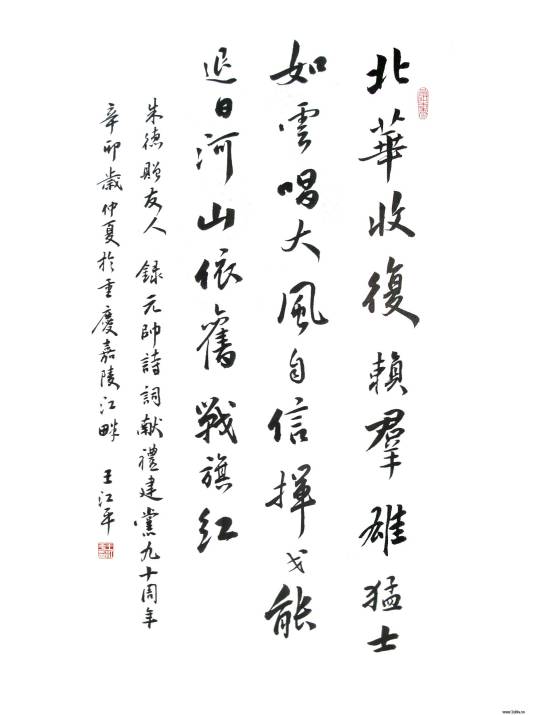 北華收復賴羣雄猛士
如雲唱大風自信揮戈能
退日河山依舊戰旗紅
朱德贈友人 録元帥詩詞献禮建黨九十周年
辛卯歲仲夏於重慶嘉陵江畔 王江平